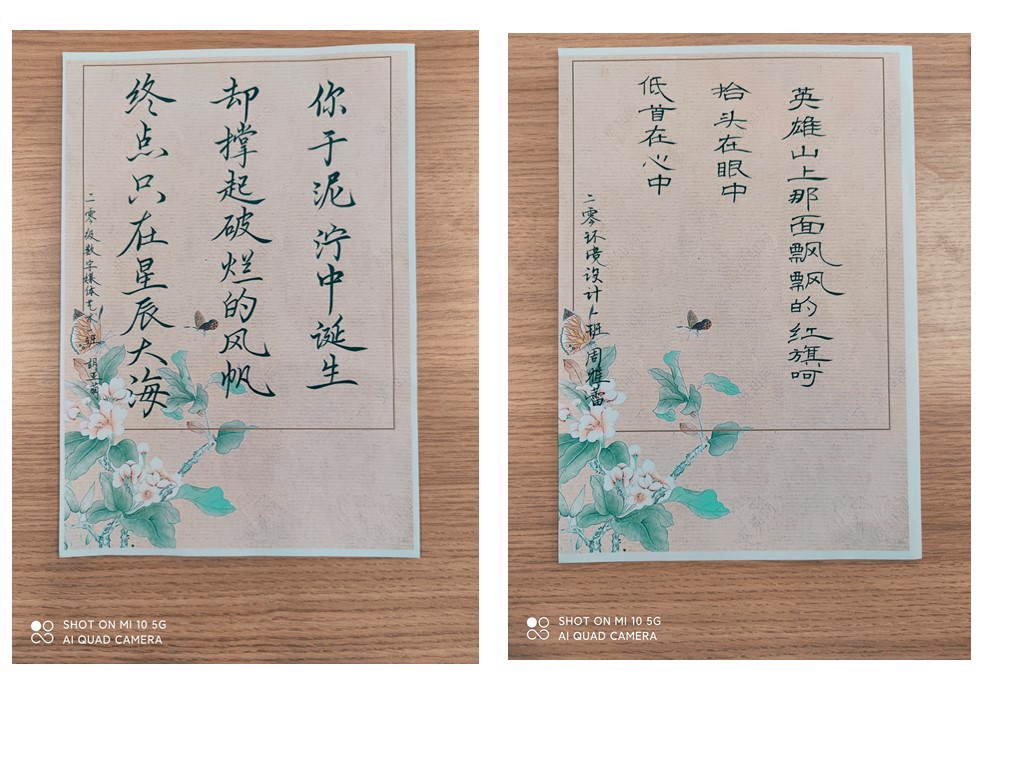 你于泥泞中诞生
却撑起破烂的风帆
终点只在星辰大海
二零级数字媒体艺术一班 胡
SHOT ON MI 10 5G
AI QUAD CAMERA
英雄山上那面飘飘的红旗呵
抬头在眼中
低首在心中
二零环境设计一班周雅蕾
SHOT ON MI 10 5G
AI QUAD CAMERA